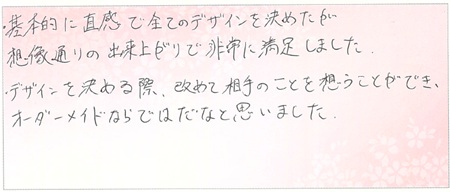 ・基本的に直感で全てのデザインを決めたが
想像通りの出来上がりで非常に満足しました.
・デザインを決める際、改めて相手のことを想うことができ、
オーダーメイドならではだなと思いました.